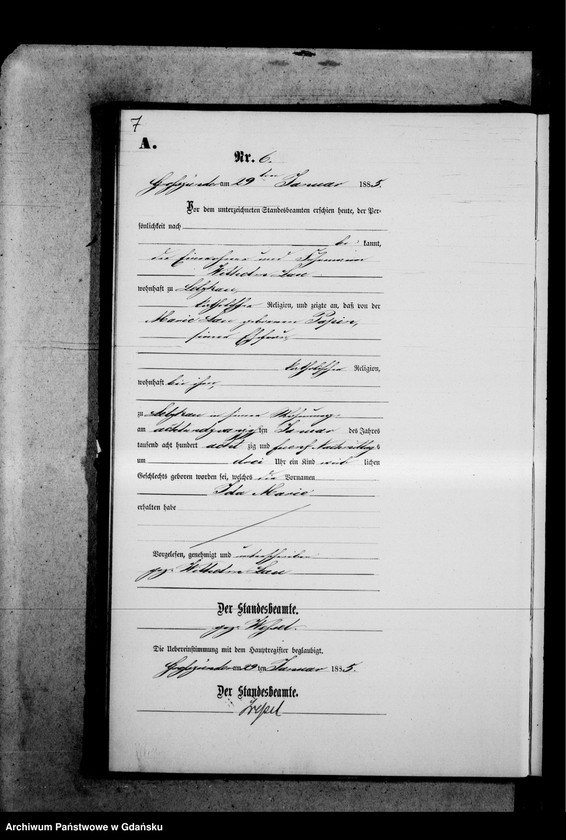 7
A.
Nr. 6.
Großzünder am 29ten Januar 1885.
Vor dem unterzeichneten Standesbeamten erschien heute, der Per-
sönlichkeit nach
be kannt,
der Einwohner und
Wilhelm
wohnhaft zu
katholischer Religion, und zeigte an, daß von der
Marie geborenen
seiner Ehefrau,
katholischer Religion,
wohnhaft bei ihm,
zu in seiner Wohnung
am achtundzwanzigsten Januar des Jahres
tausend acht hundert acht zig und fuenf Nachmittags
um drei Uhr ein Kind weib lichen
Geschlechts geboren worden sei, welches die Vornamen
Ida Marie
erhalten habe
Vorgelesen, genehmigt und unterschrieben
gez. Wilhelm
Der Standesbeamte.
gez. Wessel.
Die Uebereinstimmung mit dem Hauptregister beglaubigt.
Großzünder am 29 ten Januar 1885.
Der Standesbeamte.
Wessel
Archiwum Państwowe w Gdańsku